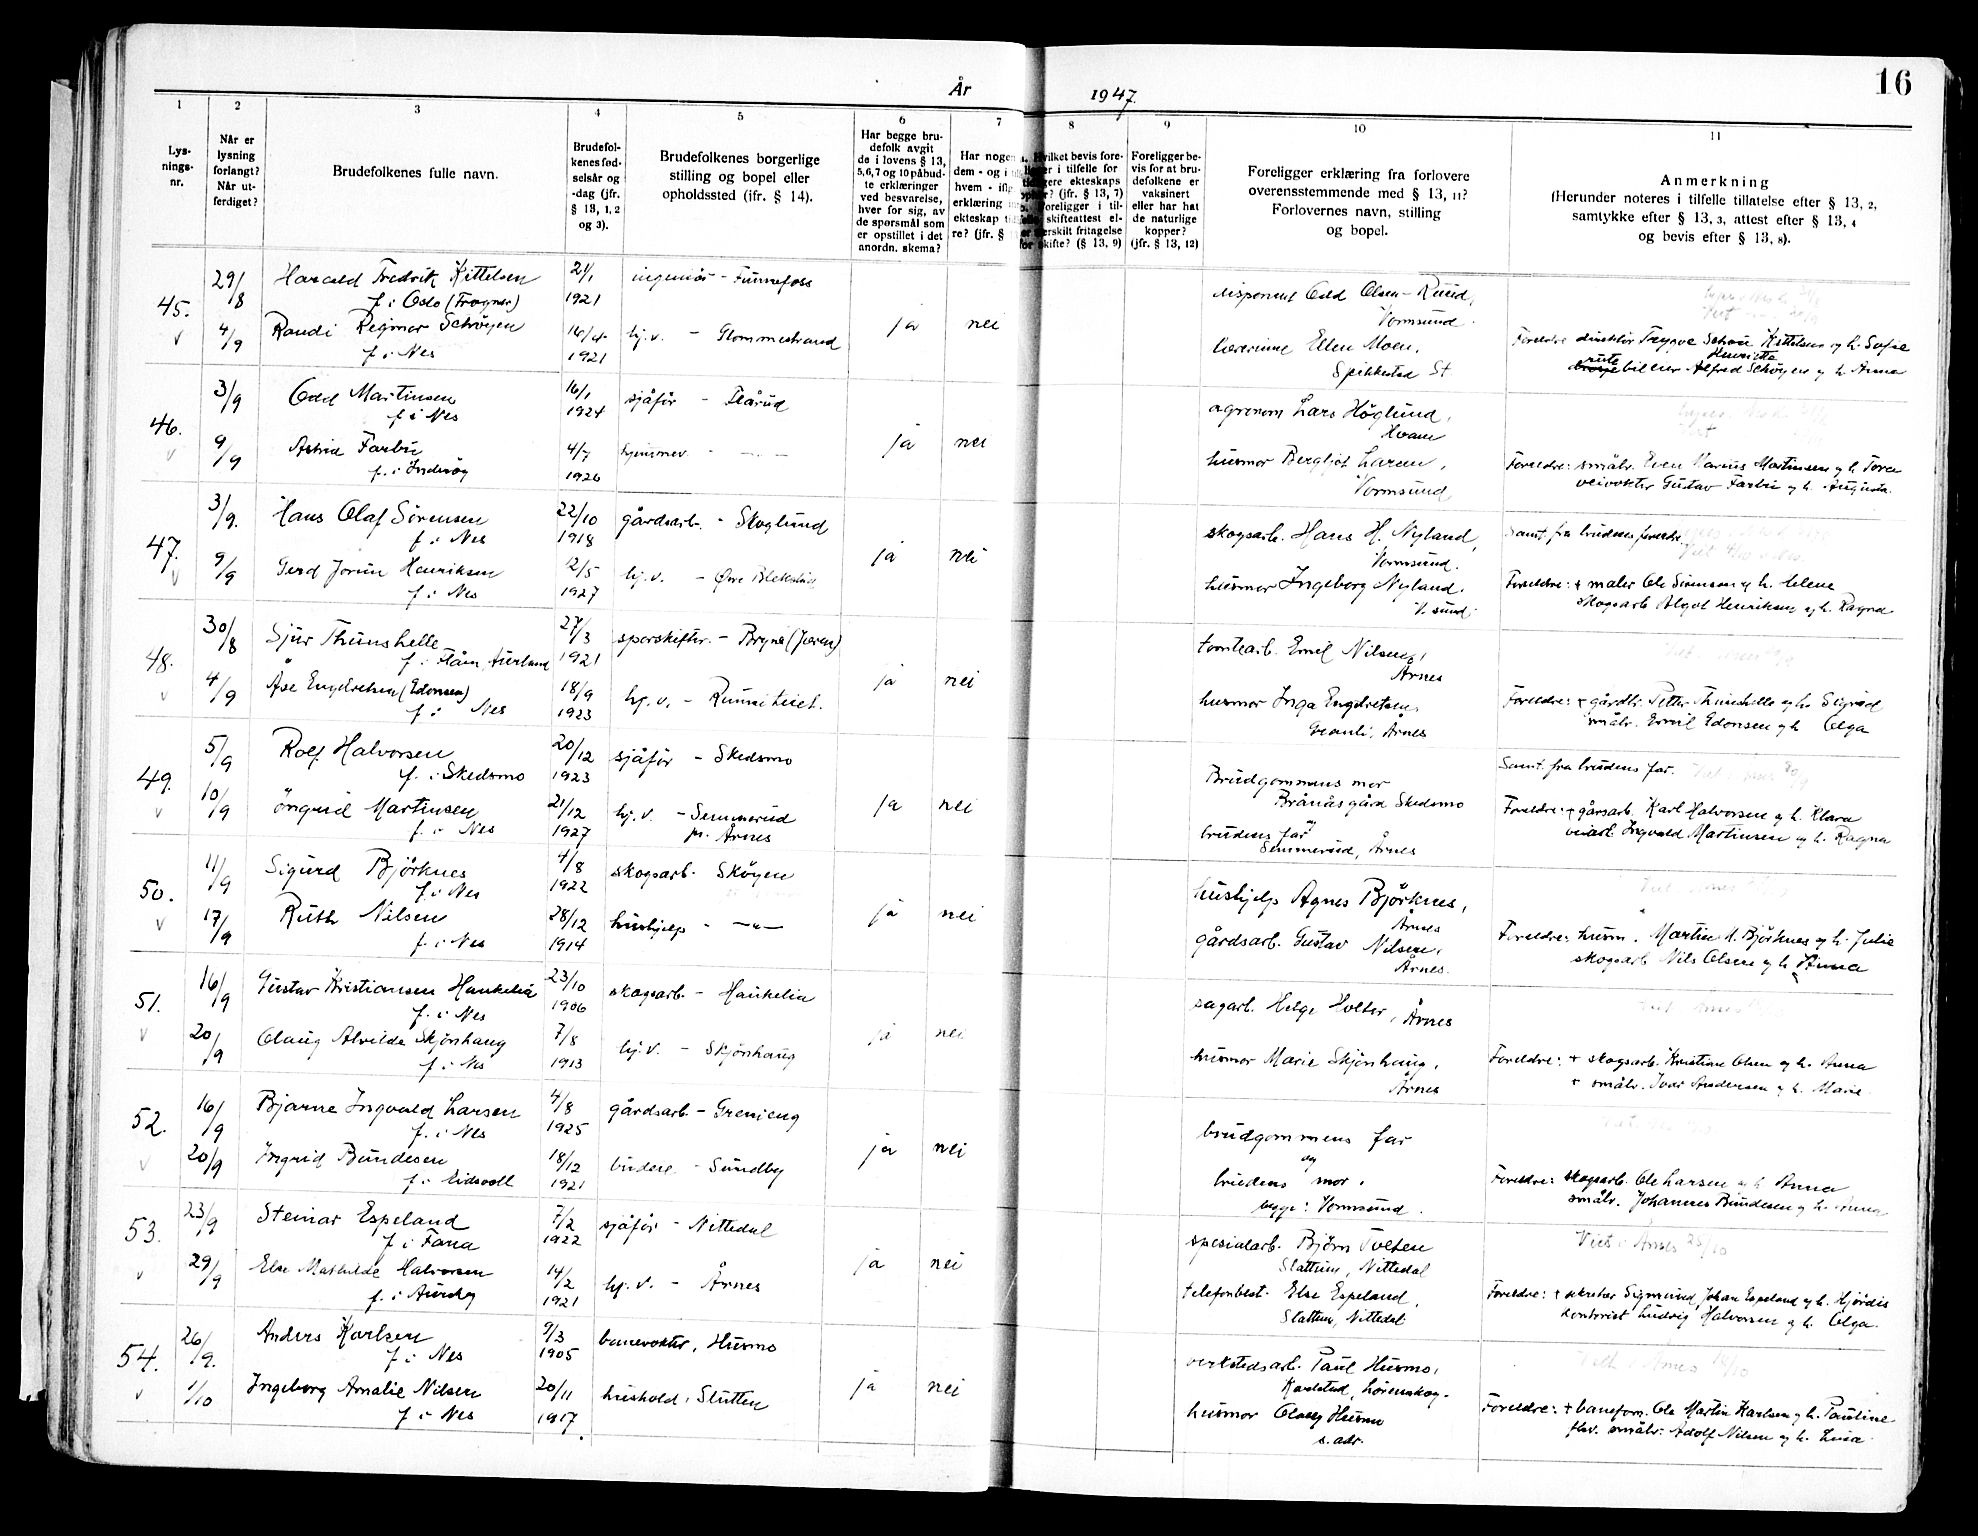 16
År 1947.
1 2 3 4 5 6 7 8 9 10 11
Lys-
nings-
nr.
Når er
lysning
forlangt?
Når ut-
ferdiget?
Brudefolkenes fulle navn.
Brudefol-
kenes fød-
selsår og
-dag (jfr.
§ 13, 1, 2
og 3).
Brudefolkenes borgerlige
stilling og bopel eller
opholdssted (ifr. § 14).
Har begge bru-
defolk avgit
de i lovens § 13,
5,6,7 og 10 påbud-
te erklæringer
ved besvarelse,
hver for sig, av
de spørsmål som
er opstillet i det
anordn. skema?
Har nogen
dem - og i
hvem - ifl
erklæring
ekteskap
re? (jfr. §
Hvilket bevis fore-
i tilfelle for
ekteskaps
? (jfr. § 13, 7)
Foreligger i til-
skifteattest el-
fritagelse
skifte? (§ 13, 9)
Foreligger be-
vis for at bru-
defolkene er
vaksinert
eller har hat
de naturlige
kopper?
(jfr. § 13, 12)
Foreligger erklæring fra forlovere
overensstemmende med § 13, 11?
Forlovernes navn, stilling
og bopel.
Anmerkning
(Herunder noteres i tilfelle tillatelse efter § 13, 2,
samtykke efter § 13, 3, attest efter § 13, 4
og bevis efter § 13, 8).
45. 29/8 Harald Fredrik Kittelsen 21/1 ingeniør - Funnefoss disponent Odd Olsen-Ruud,
f. i Oslo (Frogner) 1921 Vormsund.
v 4/9 Randi Regmor Schøyen 16/4 hj.v. - Glommestrand ja nei lærerinne Ellen Moen, Foreldre direktør Trygve Schou Kittelsen og h. Sofie Henriette
f. i Nes 1921 Spikkestad St rute bileier Alfred Schøyen og h. Anna
46. 3/9 Odd Martinsen 16/1 sjåfør - Flårud agronom Lars Höglund,
f. i Nes 1924 Hvam
v 9/9 Astrid Farbu 4/7 hjemmev. - — " — ja nei husmor Bergljot Larsen, Foreldre: småbr. Even Marius Martinsen og h. Tora
f. i Inderøy 1926 Vormsund veivokter Gustav Farbu og h. Augusta.
47. 3/9. Hans Olaf Sörensen 22/10 gårdsarb. - Skoglund skogsarb. Hans H. Nyland, Samt. fra brudens foreldre.
f. i Nes 1918 Vormsund.
v 9/9 Gerd Jorun Henriksen 12/5 hj.v. - Øvre Blekstu ja nei husmor Ingeborg Nyland. Foreldre: + maler Ole Sörensen og h. Helene
f. i Nes 1927 V. sund. skogsarb. Algot Henriksen og h. Ragna
48. 30/8 Sjur Thunshelle 27/3 sporskifter - Bryne (Jæren) tomtearb. Emil Nilsen,
f. i Flåm, Aurland 1921 Årnes
v 4/9 Åse Engebretsen (Edonsen) 18/9 hj.v. - Runniteiet. ja nei husmor Inga Engebretsen, Foreldre: + gårdbr. Petter Thunshelle og h. Sigrid
f. i Nes 1923 Granli, Årnes småbr. Emil Edonsen og h. Olga
49. 5/9 Rolf Halvorsen 20/12 sjåfør - Skedsmo Brudgommens mor Samt. fra brudens far.
f. i Skedsmo 1923 Brånås gård Skedsmo
v 10/9 Yngvild Martinsen 21/12 hj.v. - Semmerud ja nei og Foreldre: + gårsarb. Karl Halvorsen og h. Klara
f. i Nes 1927 pr. Årnes brudens far veiarb. Ingvald Martinsen og h. Ragna
Semmerud, Årnes
50. 11/9 Sigurd Björknes 4/8 skogsarb. Skøyen hushjelp Agnes Björknes,
f. i Nes 1922 Årnes
v 17/9 Ruth Nilsen 28/12 hushjelp - — " — ja nei gårdsarb. Gustav Nilsen, Foreldre: husm. Martin M. Björknes og h. Julie
f. i Nes 1914 Årnes. skogsarb. Nils Olsen og h. Anna
51. 16/9 Gustav Kristiansen Haukelia 23/10 skogsarb. - Haukelia sagarb. Helge Holter, Årnes
f. i Nes 1906
v 20/9 Olaug Alvilde Skjønhaug 7/8 hj.v. - Skjønhaug ja nei husmor Marie Skjønhaug, Foreldre: + skogsarb. Kristian Olsen og h. Anna
f. i Nes 1913 Årnes + småbr. Ivar Andersen og h. Marie
52. 16/9 Bjarne Ingvald Larsen 4/8 gårdsarb - Grenieng brudgommens far
f. i Nes 1925 og
v 20/9 Ingrid Bundesen 18/12 budeie - Sundby ja nei brudens mor. Foreldre: skogsarb. Ole Larsen og h. Anna
f. i Eidsvoll 1921 begge: Vormsund. småbr. Johannes Bundesen og h. Anna
53. 23/9 Steinar Espeland 7/2 sjåfør - Nittedal spesialarb. Björn Tveten Viet i Årnes 25/10
f. i Fana 1922 Slattum, Nittedal
v 29/9 Else Mathilde Halvorsen 14/2 hj.v. - Årnes ja nei telefonbest. Else Espeland, Foreldre: + sekretær Sigmund Johan Espeland og h. Hjördis
f. i Aurskog 1921 Slattum, Nittedal kontorist Ludvig Halvorsen og h. Olga
54. 26/9. Anders Karlsen 9/3 banevokter, Husmo verkstedsarb. Paul Husmo,
f. i Nes 1905 Karlstad, Lørenskog.
v 1/10 Ingeborg Amalie Nilsen 20/11 hushold. Slutten ja nei husmor Olaug Husmo Foreldre: + baneform. Ole Martin Karlsen og h. Pauline
f. i Nes 1917. s. adr. fhv. småbr. Adolf Nilsen og h. Lina